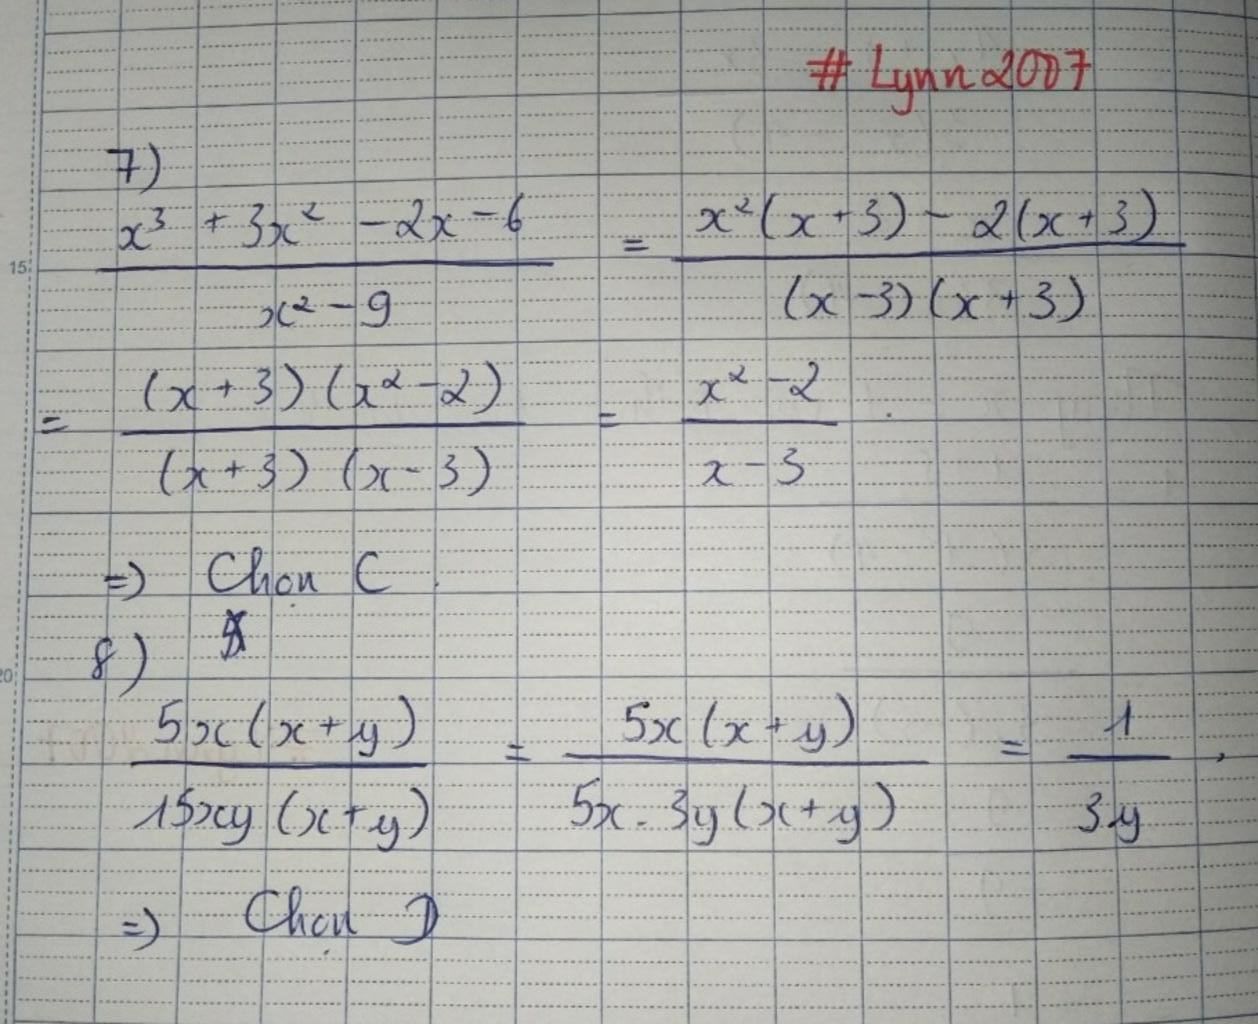 # Lynn2007
7)
x³ + 3x² - 2x - 6 / x² - 9 = x²(x + 3) - 2(x + 3) / (x - 3)(x + 3)
= (x + 3)(x² - 2) / (x + 3)(x - 3) = x² - 2 / x - 3 .
=> Chọn C.
8)
5x(x + y) / 15xy(x + y) = 5x(x + y) / 5x . 3y(x + y) = 1 / 3y .
=> Chọn D
15
20